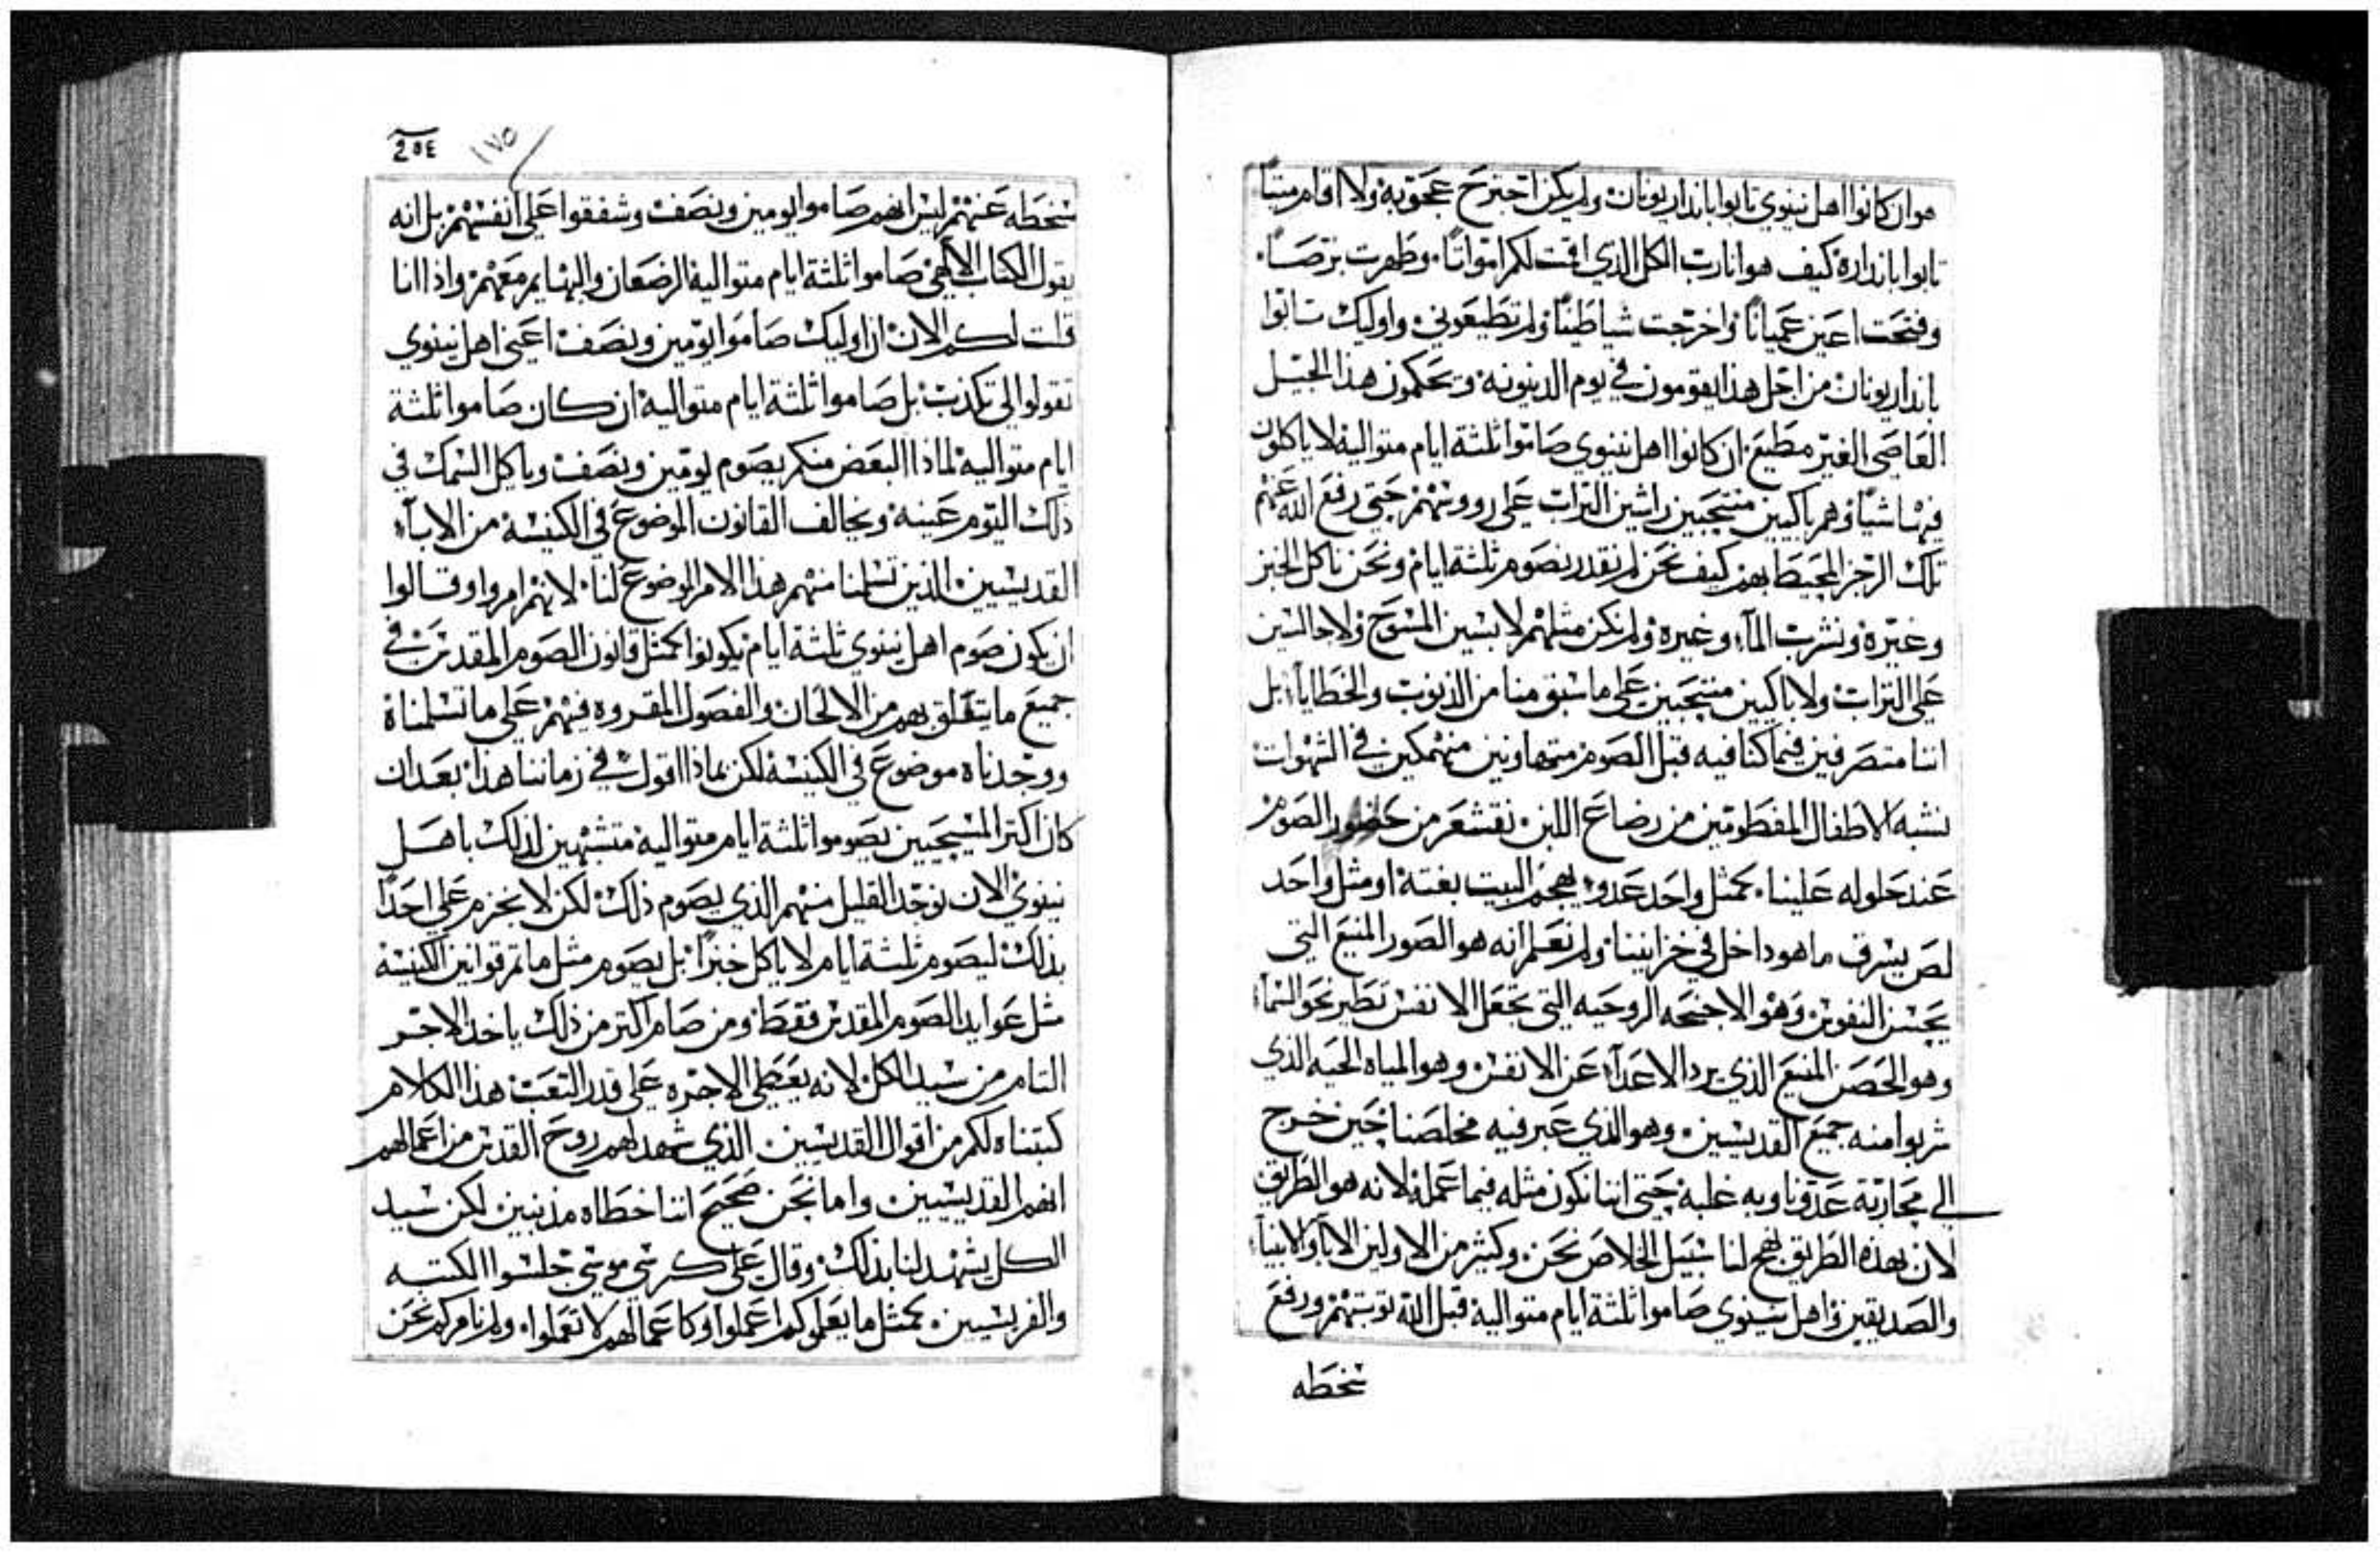 هو ان كانوا اهل نينوي تابوا بانذار يونان ولم يكن اجترح عجوبة ولا اقام ميتاً
تابوا بانذاره كيف هو انا رب الكل الذي اقمت لكم امواتاً وطهرت برصاً
وفتحت اعين عمياناً واخرجت شياطيناً ولم تطيعوني واوليك تابوا
بانذار يونان من اجل هذا يقومون في يوم الدينونة ويحكمون هذا الجيل
العاصي الغير مطيع ان كانوا اهل نينوي صاموا ثلثة ايام متوالية لا ياكلون
فيها شياً وهم باكيين منتحبين راشين التراب علي رووسهم حتي رفع الله عنهم
تلك الرجز المحيط بهم كيف نحن لم نقدر نصوم ثلثة ايام ونحن ناكل الخبز
وغيره ونشرب المآء وغيره ولم نكن مثلهم لابسين المسوح ولا جالسين
علي التراب ولا باكيين منتحبين علي ما سبق منا من الذنوب والخطايا بل
اننا متصرفين فيما كنا فيه قبل الصوم متهاونين منهمكين في الشهوات
نشبه الاطفال المفطومين من رضاع اللبن نقشعر من حضور الصوم
عند حلوله علينا كمثل واحد عدو يهجم البيت بغتة او مثل واحد
لص يسرق ما هو داخل في خزاييننا ولم نعلم انه هو الصور المنيع التي
يحسن النفوس وهو الاجنحه الروحيه التي تجعل الانفس تطير نحو السمآء
وهو الحصن المنيع الذي يرد الاعدآء عن الانفس وهو المياه الحيه الذي
شربوا منه جميع القديسين وهو الذي عبر فيه مخلصنا حين خرج
الي محاربة عدونا وبه غلبة حتي اننا نكون مثله فيما عمله لانه هو الطريق
لان بهذه الطريق نهج لنا سبيل الخلاص نحن وكثير من الاولين الابآ والانبيآء
والصديقين واهل نينوي صاموا ثلثة ايام متوالية قبل الله توبتهم ورفع
سخطه
205٤ ١٧٥
سخطه عنهم ليس انهم صاموا يومين ونصف وشفقوا علي انفسهم بل انه
يقول الكتاب الالهي صاموا ثلثة ايام متوالية الرضعان والبهايم معهم واذا انا
قلت لكم الان ان اوليك صاموا يومين ونصف اعني اهل نينوي
تقولوا لي تكذب بل صاموا ثلثة ايام متوالية ان كان صاموا ثلثة
ايام متوالية لماذا البعض منكم يصوم يومين ونصف وياكل السمك في
ذلك اليوم عينه ويخالف القانون الموضوع في الكنيسة من الابآء
القديسين الذين تسلمنا منهم هذا الامر الموضوع لنا لانهم امروا وقالوا
ان يكون صوم اهل نينوي ثلثة ايام يكونوا كمثل قانون الصوم المقدس في
جميع ما يتعلق بهم من الالحان والفصول المقروه فيهم علي ما تسلمناة
ووجدناه موضوع في الكنيسة لكن بماذا اقول في زماننا هذا بعد ان
كان اكتر المسيحيين يصوموا ثلثة ايام متوالية متشبهين لذلك باهل
نينوي الان نوجد القليل منهم الذي يصوم ذلك لكن لا نحرم علي احداً
بذلك ليصوم ثلثة ايام لا ياكل خبزاً بل يصوم مثل ما تم قوانين الكنيسة
مثل عوايد الصوم المقدس فقط ومن صام اكتر من ذلك ياخذ الاجر
التام من سيد الكل لانه يعطي الاجره علي قدر التعب هذا الكلام
كتبناه لكم من اقوال القديسين الذي شهد لهم روح القدس من اعمالهم
انهم القديسين واما نحن صحيح اننا خطاه مذنبين لكن سيد
الكل يشهد لنا بذلك وقال علي كرسي موسي جلسوا الكتبه
والفريسين كمثل ما يعلموكم اعملوا وكاعمالهم لا تعملوا ولم نامركم نحن